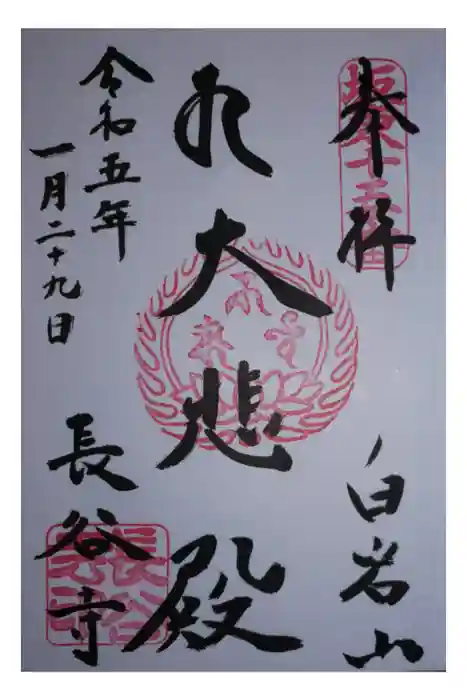 奉拝
白岩山
大悲殿
令和五年
一月二十九日
長谷寺
坂東十五番
長谷